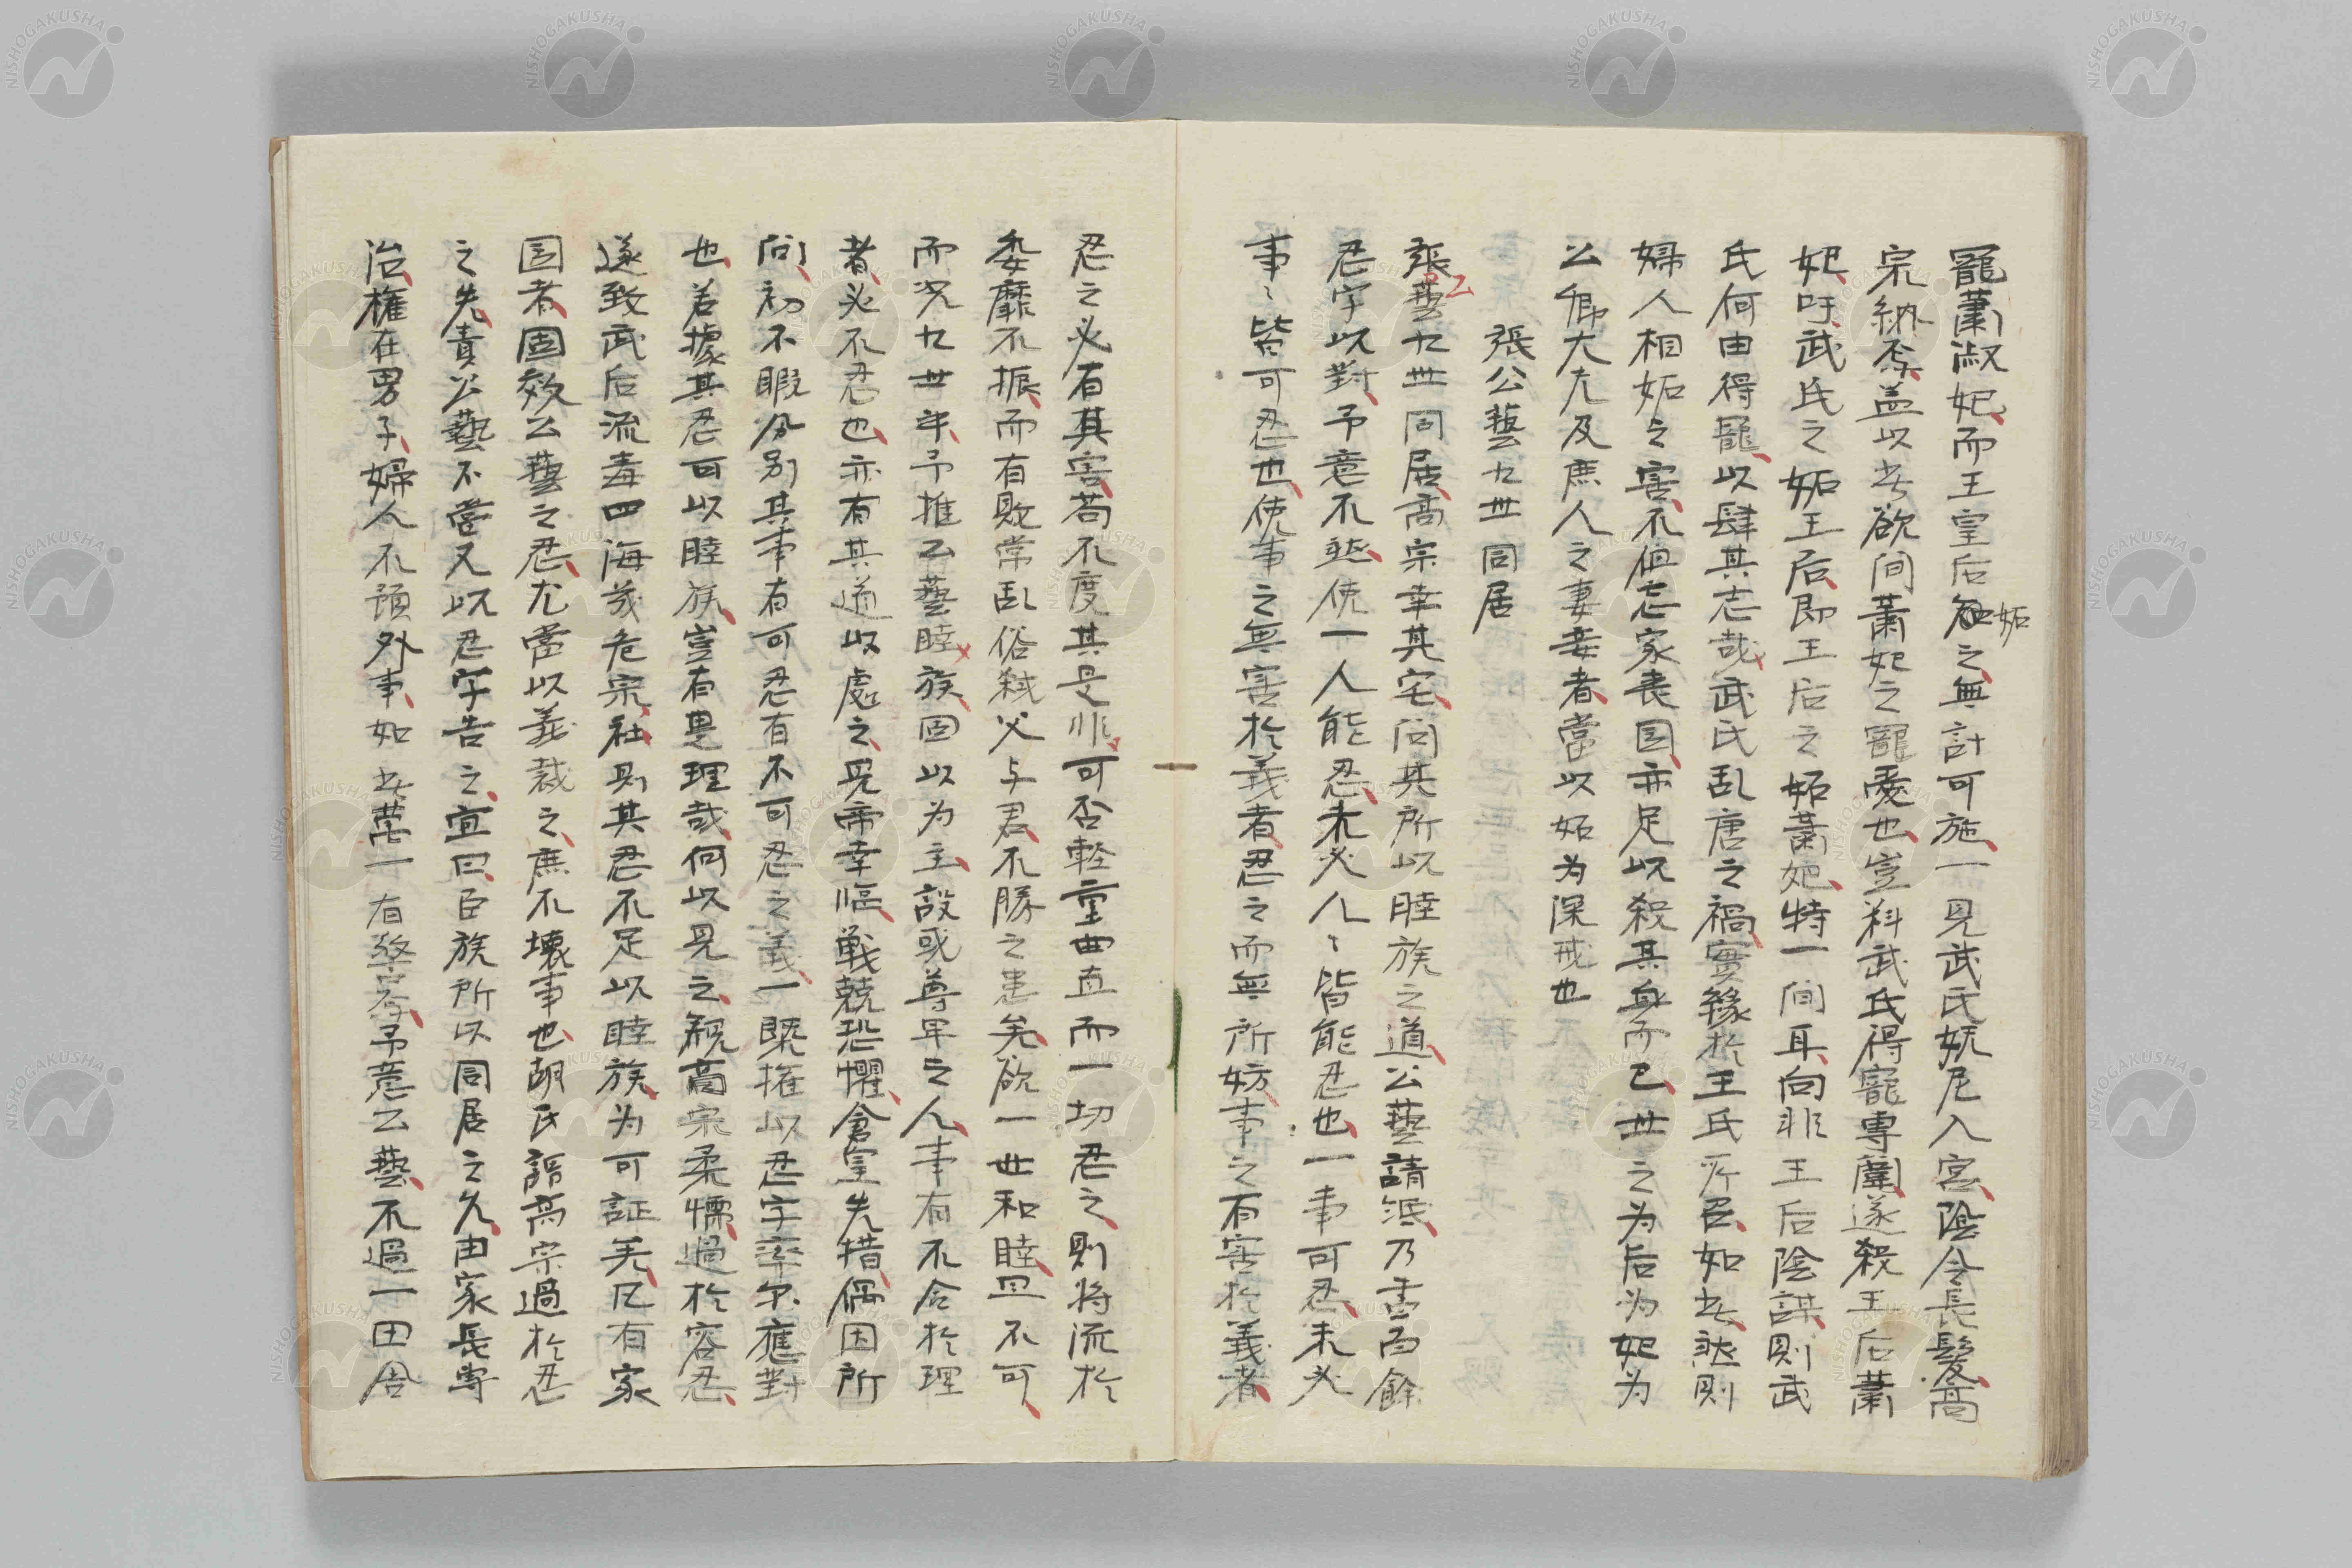 寵蕭淑妃而王皇后妬之無計可施一見武氏妩尼入宮陰令長髮高
宗納焉盖以此欲间蕭妃之寵憂也豈料武氏得寵專闈遂殺王后蕭
妃吁武氏之妬王后即王后之妬蕭妃特一间耳向非王后陰謀則武
氏何由得寵以肆其志哉武氏乱唐之禍實緣於王氏所召如此然則
婦人相妬之害不但忘家喪国亦足以殺其身而已世之为后为妃为
公卿大夫及庶人之妻妾者當以妬为深戒也
張公藝九世同居
張公藝九世同居高宗幸其宅问其所以睦族之道公藝請紙乃書百餘
忍字以對予意不然使一人能忍未必人〻皆能忍也一事可忍未必
事〻皆可忍也使事之無害於義者忍之而無所妨事之有害於義者
忍之必有其害苟不度其是非可否軽重曲直而一切忍之則将流於
委靡不振而有敗常乱俗弑父与君不勝之患矣欲一世和睦且不可
而况九世乎予推公藝睦族固以为主設或尊卑之人事有不合於理
者必不忍也亦有其道以處之見帝幸臨戦兢恐懼倉皇失措偶因所
问初不暇分别其事有可忍有不可忍之義一既摧以忍字率尔應對
也若據其忍可以睦族豈有是理哉何以見之観高宗柔懦過於容忍
遂致武后流毒四海幾危宗社則其忍不足以睦族为可証矣凡有家
国者固效公藝之忍尤當以義裁之庶不壊事也胡氏謂高宗過於忍
之失責公藝不當又以忍字告之宜曰臣族所以同居之久由家長専
治権在男子婦人不預外事如此萬一有警容予意公藝不過一田舍